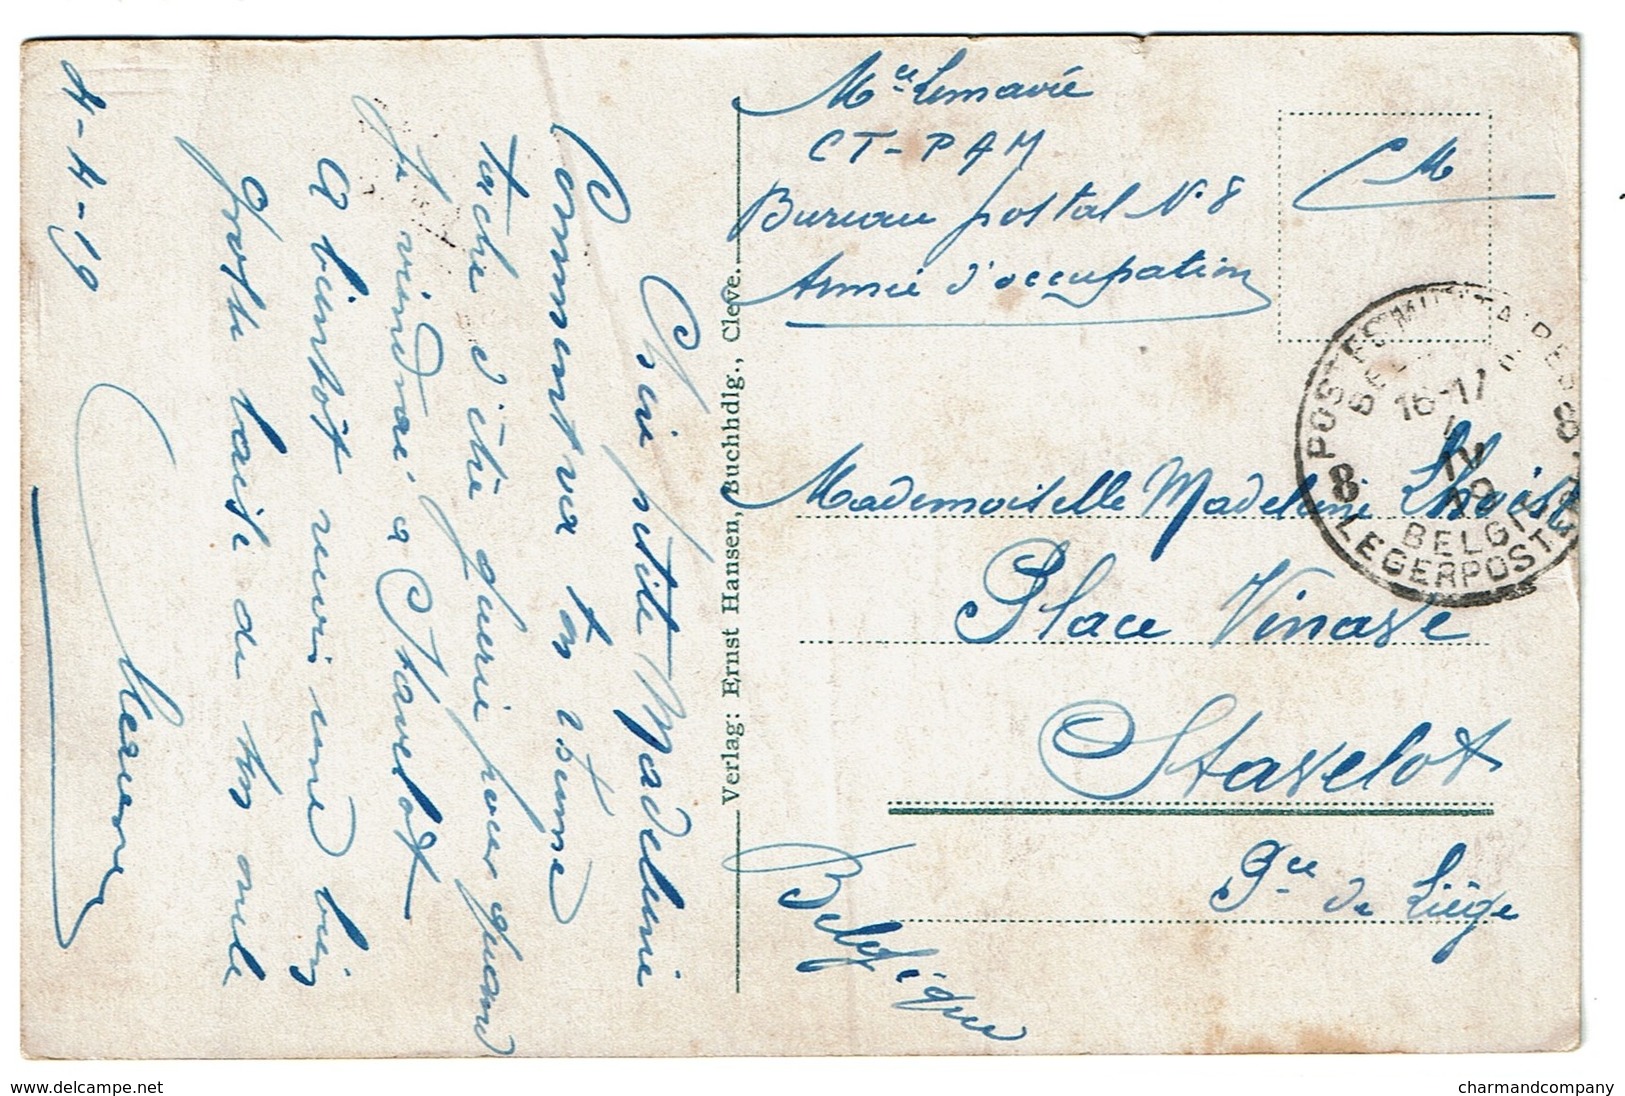 4-4-19
Chère petite Madeleine
Comment va ton rhume
tache d'être guérie pour quand
je viendrai à Stavelot
A bientôt reçois une bien
grosse baise de ton oncle
Verlag: Ernst Hansen, Buchhdlg., Cleve.
Mce Lemavié
CT-PAM
Bureau postal N°8
Armée d'occupation
CM
POSTES MILITAIRES
16-17
IV
19
8
8
BELGIË
LEGERPOSTERIJ
Mademoiselle Madeleine Lhoist
Place Vinave
Stavelot
Pce de Liège
Belgique
www.delcampe.net
charmandcompany